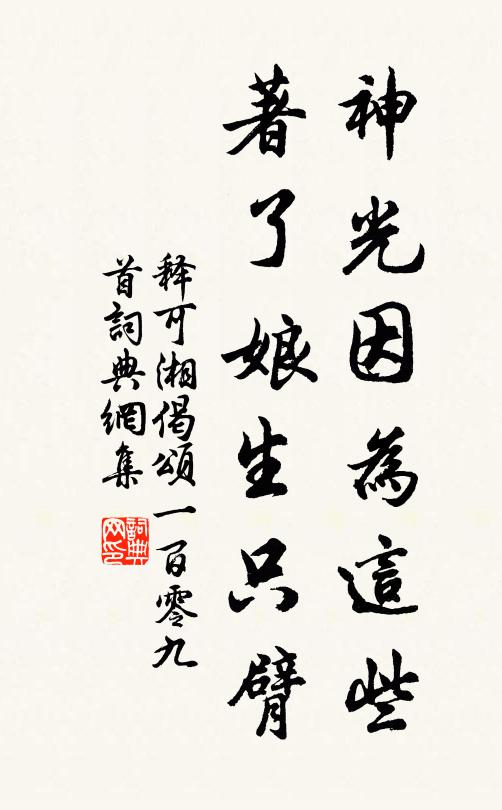 神光因為這些
著了娘生只臂
释可湘偈頌一百零九
首詞典網集
詞典网印